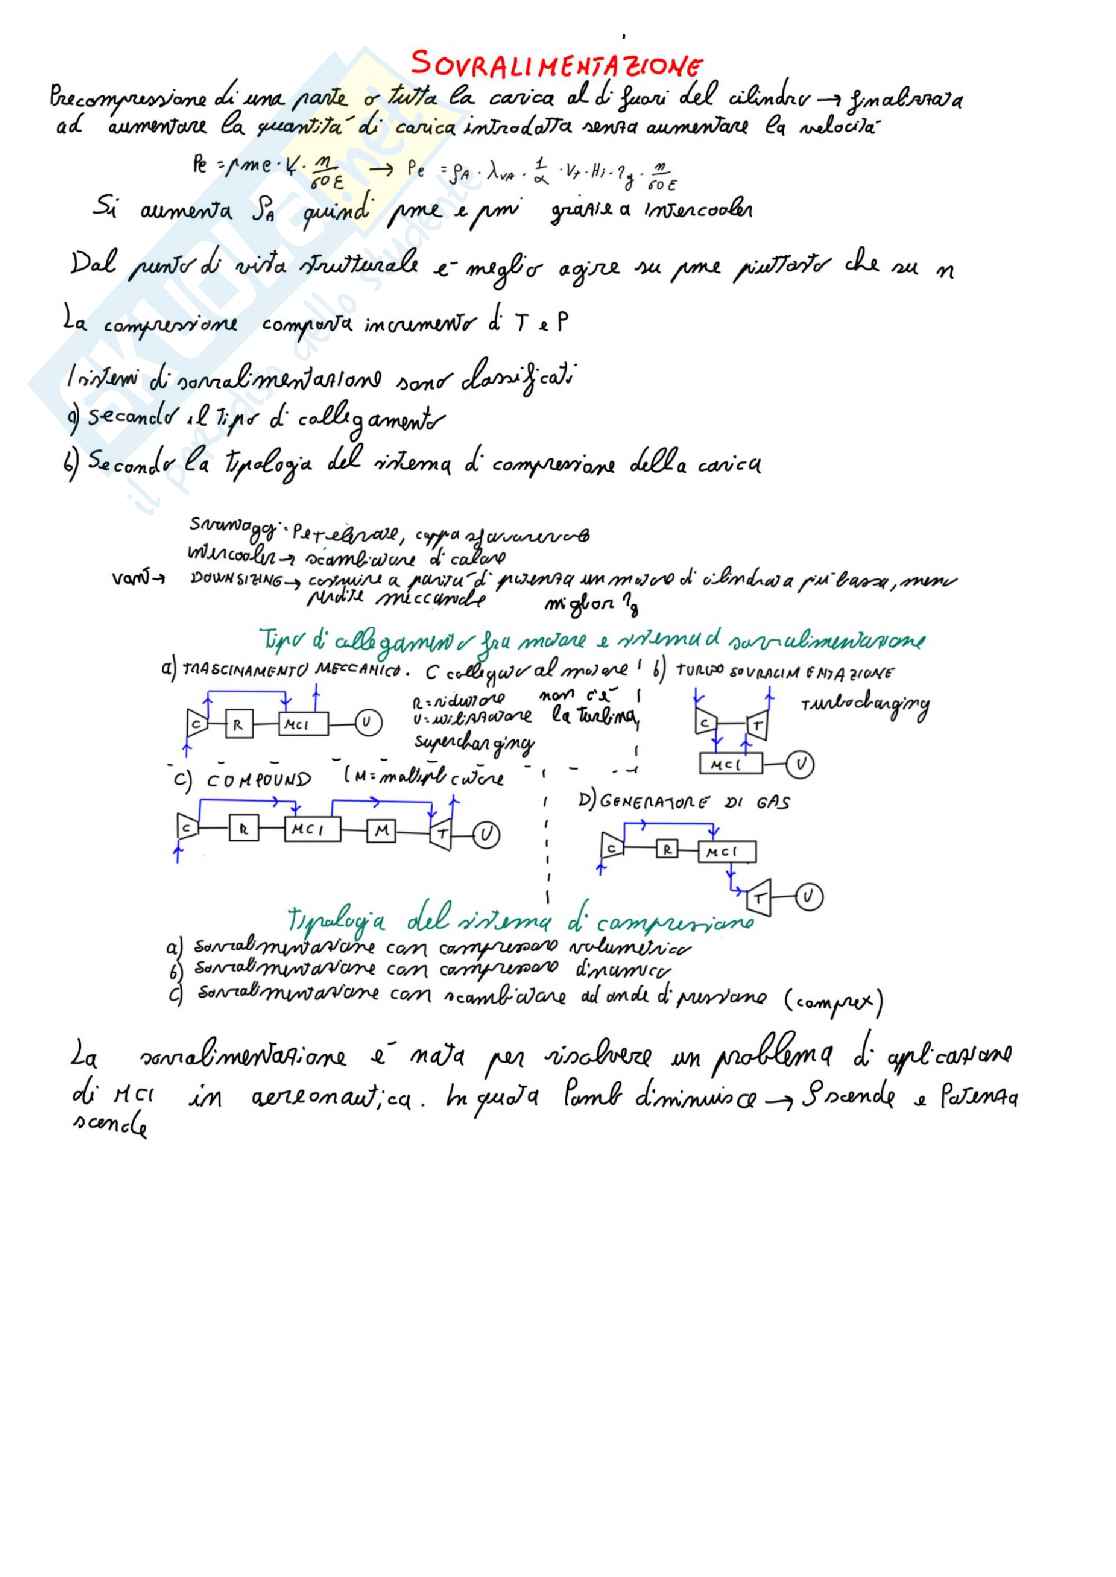 SOVRALIMENTAZIONE
Precompressione di una parte o tutta la carica al di fuori del cilindro → finalizzata
ad aumentare la quantità di carica introdotta senza aumentare la velocità
Pe = pme · Vt · n/60ε → Pe = ρA · λVA · 1/α · Vt · Hi · ηg · n/60ε
Si aumenta ρA quindi pme e pmi grazie a intercooler
Dal punto di vista strutturale è meglio agire su pme piuttosto che su n
La compressione comporta incremento di T e P
I sistemi di sovralimentazione sono classificati
a) Secondo il tipo di collegamento
b) Secondo la tipologia del sistema di compressione della carica
Svantaggi: P e T elevate, coppia sfavorevole
intercooler → scambiatore di calore
vant → DOWNSIZING → costruire a parità di potenza un motore di cilindrata più bassa, meno
perdite meccaniche miglior ηg
Tipo di collegamento fra motore e sistema di sovralimentazione
a) TRASCINAMENTO MECCANICO. C collegato al motore b) TURBO SOVRALIMENTAZIONE
R = riduttore non c'è
U = utilizzatore la turbina
Supercharging
Turbocharging
C R MCI U
C T
MCI U
C) COMPOUND (M = moltiplicatore
D) GENERATORE DI GAS
C R MCI M T U
C R MCI
T U
Tipologia del sistema di compressione
a) Sovralimentazione con compressore volumetrico
b) Sovralimentazione con compressore dinamico
c) Sovralimentazione con scambiatore ad onde di pressione (comprex)
La sovralimentazione è nata per risolvere un problema di applicazione
di MCI in aereonautica. In quota Pamb diminuisce → ρ scende e Potenza
scende
il paradiso dello studente
SKUOLA.net